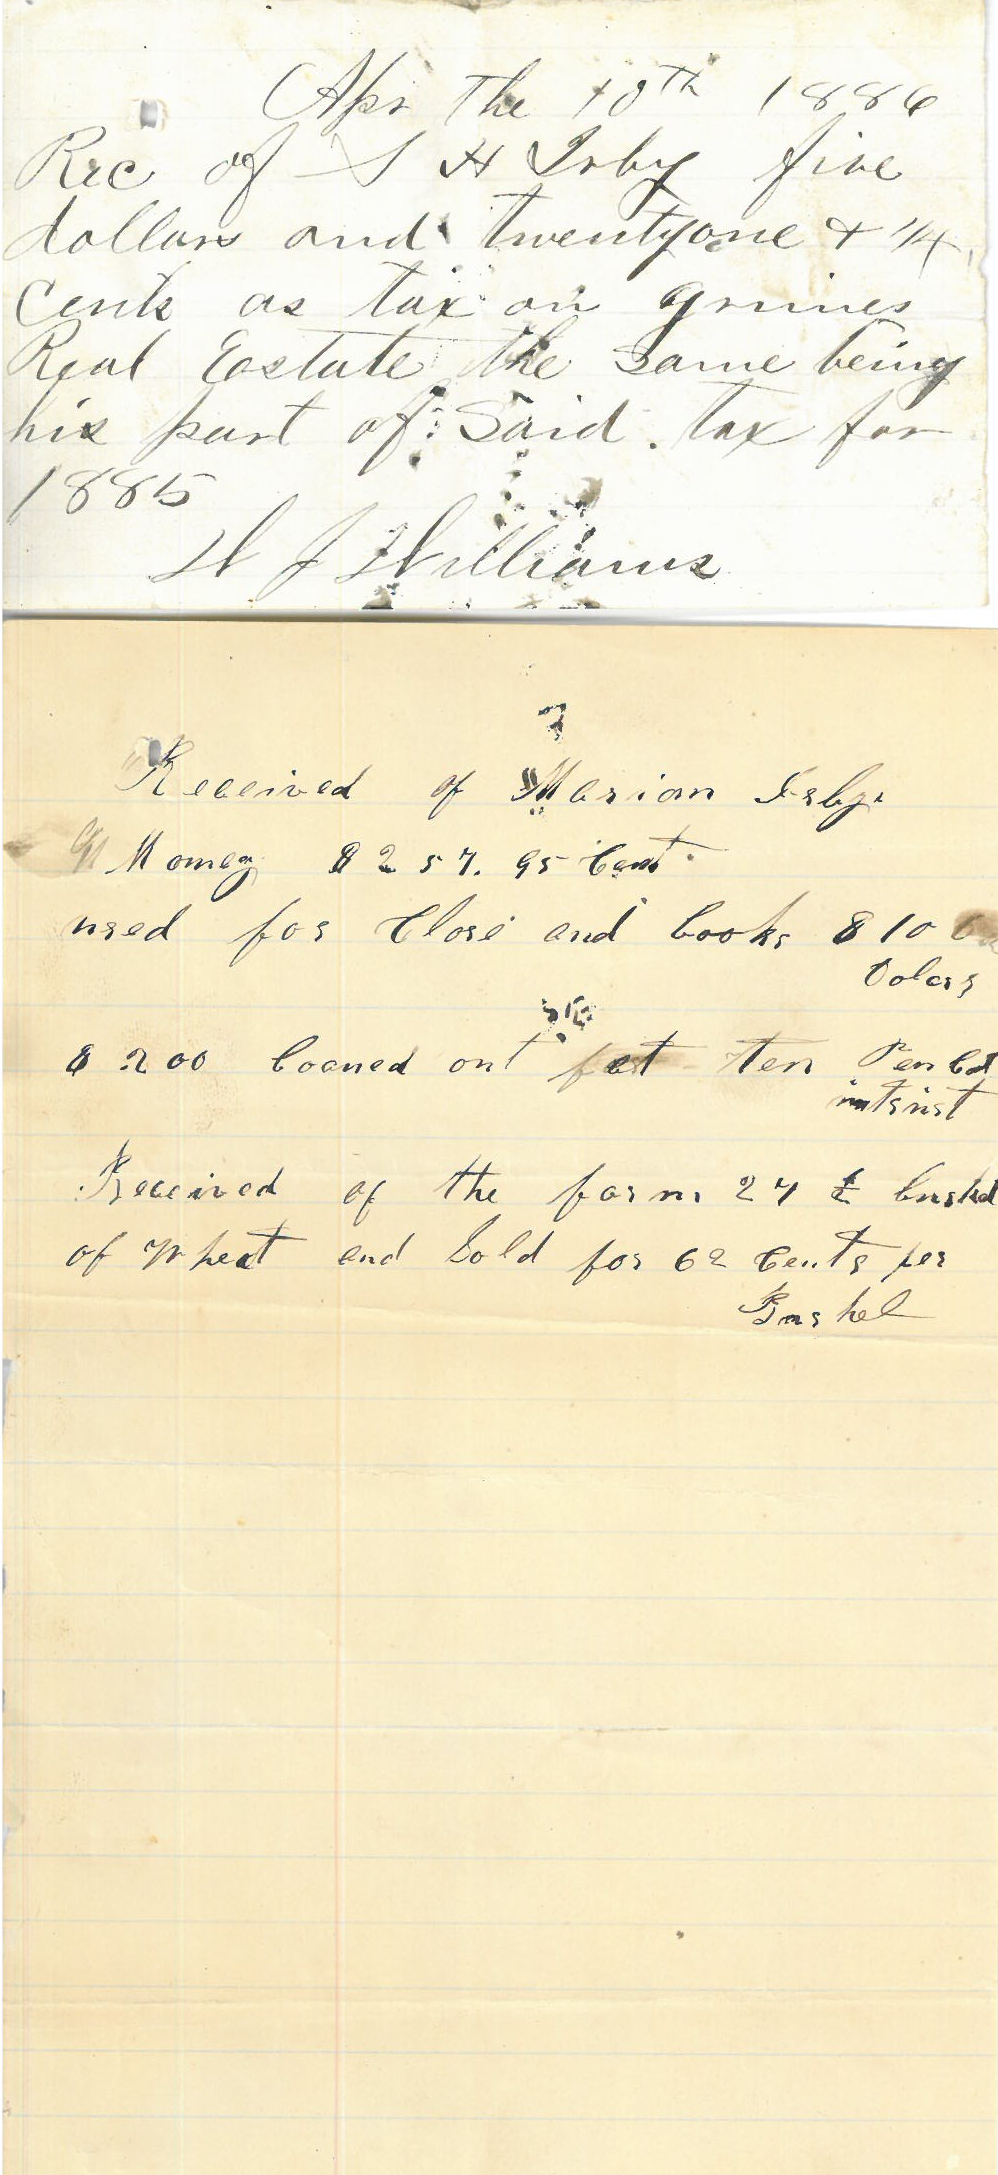 Apr the 10th 1886
Rec of S H Irby five
dollars and twentyone & 1/4
Cents as tax on grimes
Real Eastate the same being
his part of Said tax for
1885
W J Williams
Received of Marion Irby
Money $257.95 Cent
used for Close and books $10
Dolars
$200 loaned out at ten Per Ct
intrist
Received of the farm 24 bushel
of Wheat and Sold for 62 Cents per
Bushel